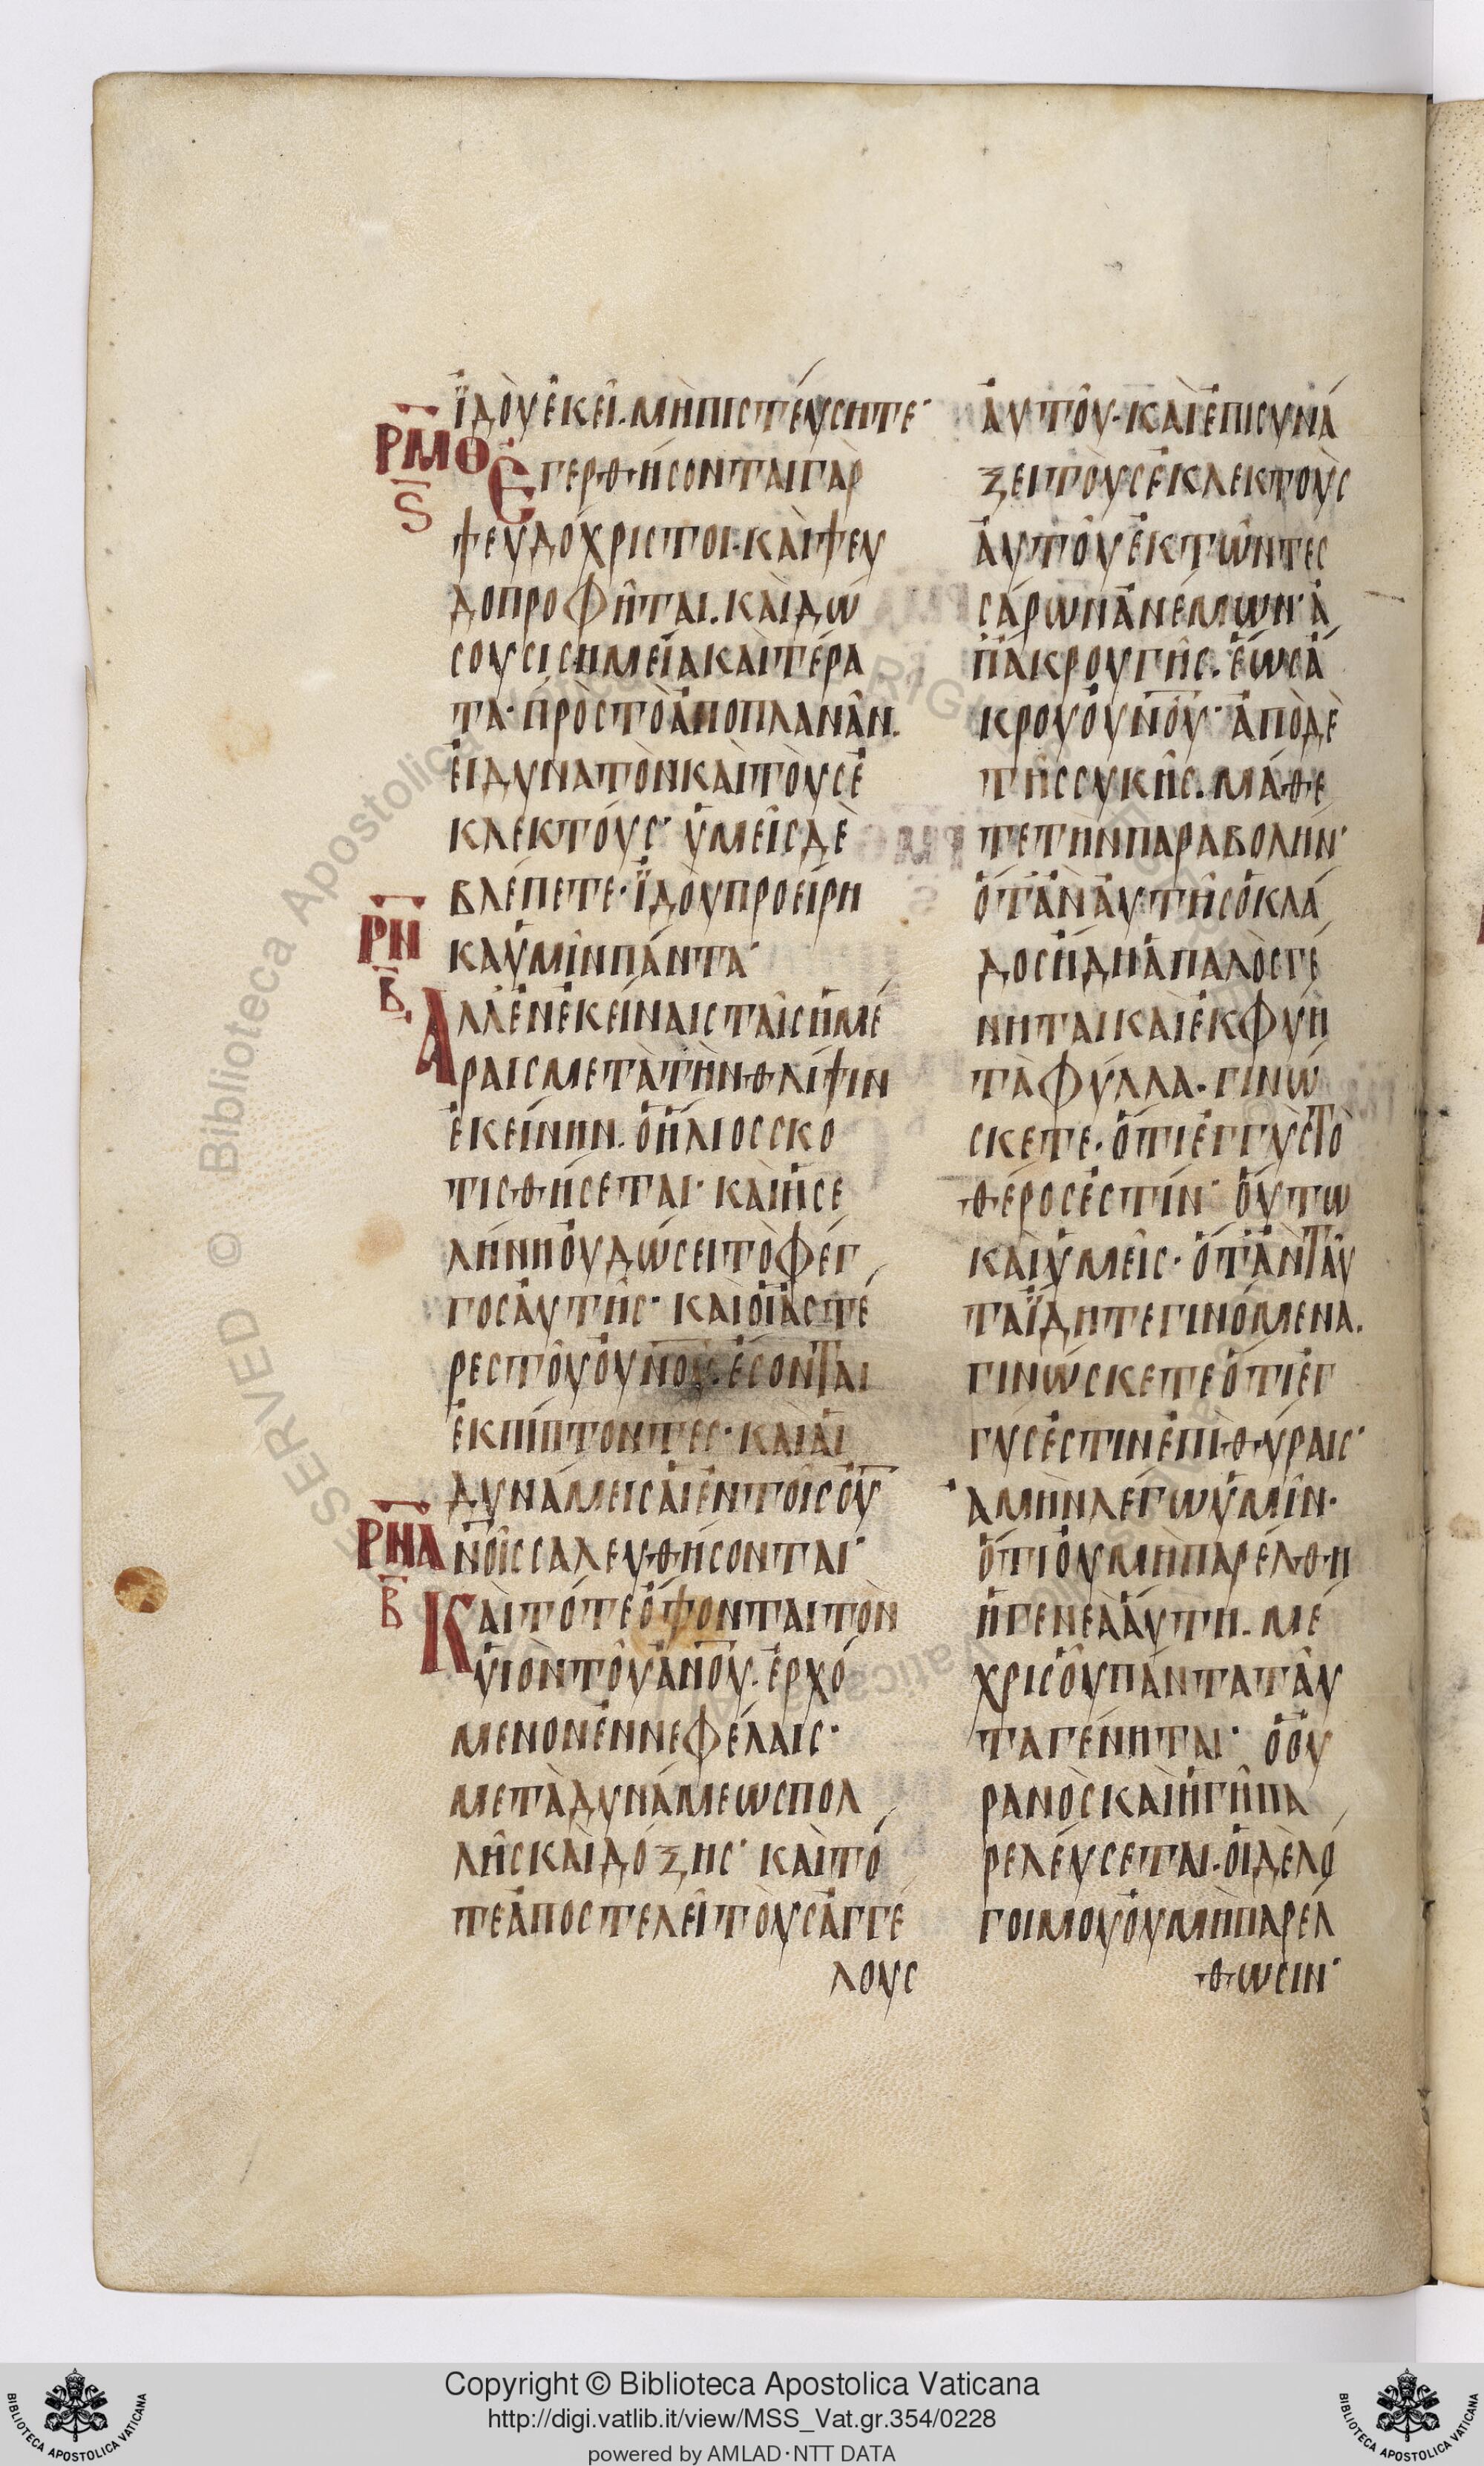 ἰδοὺ ἐκεῖ. μὴ πιστέυσητε·
ΡΜΘ
Ϛ
Ἐγερθήσονται γὰρ
ψευδόχριστοι· καὶ ψευ
δοπροφῆται. καὶ δώ
σουσι σημεῖα καὶ τέρα
τα· πρὸς τὸ ἀποπλανᾶν.
ἐι δυνατὸν καὶ τοὺς ἐ
κλεκτόυς· ὑμεῖς δὲ
βλέπετε· ἰδοὺ προείρη
ΡΝ
Β
κα ὑμῖν πάντα·
Ἀλλ ἐν ἐκείναις ταῖς ἡμέ
ραις μετὰ τὴν θλίψιν
ἐκείνην. ὁ ἥλιος σκο
τισθήσεται· καὶ ἡ σε
λήνη ὀυ δώσει τὸ φέγ
γος ἀυτῆς· καὶ οἱ ἀστέ
ρες τοῦ ὀυνοῦ. ἔσονται
ἐκπίπτοντες· καὶ ἁι
δυνάμεις ἁι ἐν τοῖς ὀυ
ΡΝΑ
νοῖς σαλευθήσονται·
Β
Καὶ τότε ὄψονται τὸν
υἱὸν τοῦ ἀνου. ἐρχό
μενον ἐν νεφέλαις·
μετὰ δυνάμεως πολ
λῆς καὶ δόξης· καὶ τό
τε ἀποστελεῖ τοὺς ἀγγέ
λους
ἀυτοῦ· καὶ ἐπισυνά
ξει τοὺς ἐκλεκτοὺς
ἀυτοῦ ἐκ τῶν τεσ
σάρων ἀνέμων· ἀ
π ἄκρου γῆς. ἕως ἄ
κρου ὀυνοῦ· ἀπὸ δὲ
τῆς συκῆς. μάθε
τε τὴν παραβολήν·
ὅταν ἀυτῆς ὁ κλά
δος ἤδη ἁπαλὸς γέ
νηται καὶ ἐκφυῆ
τὰ φύλλα· γινώ
σκετε· ὅτι ἐγγὺς τὸ
θέρος ἐστίν· ὅυτω
καὶ ὑμεῖς· ὅταν ταῦ
τα ἴδητε γινόμενα.
γινώσκετε ὅτι ἐγ
γύς ἐστιν ἐπὶ θύραις·
ἀμὴν λέγω ὑμῖν·
ὅτι ὀυ μὴ παρέλθη
ἡ γενεὰ ἅυτη. μέ
χρις ὅυ πάντα ταῦ
τα γένηται· ὁ ὀυ
ρανὸς καὶ ἡ γῆ πα
ρελέυσεται· ὁι δὲ λό
γοι μου ὀυ μὴ παρέλ
θωσιν·
Copyright © Biblioteca Apostolica Vaticana
http://digi.vatlib.it/view/MSS_Vat.gr.354/0228
powered by AMLAD·NTT DATA
BIBLIOTECA APOSTOLICA VATICANA
BIBLIOTECA APOSTOLICA VATICANA